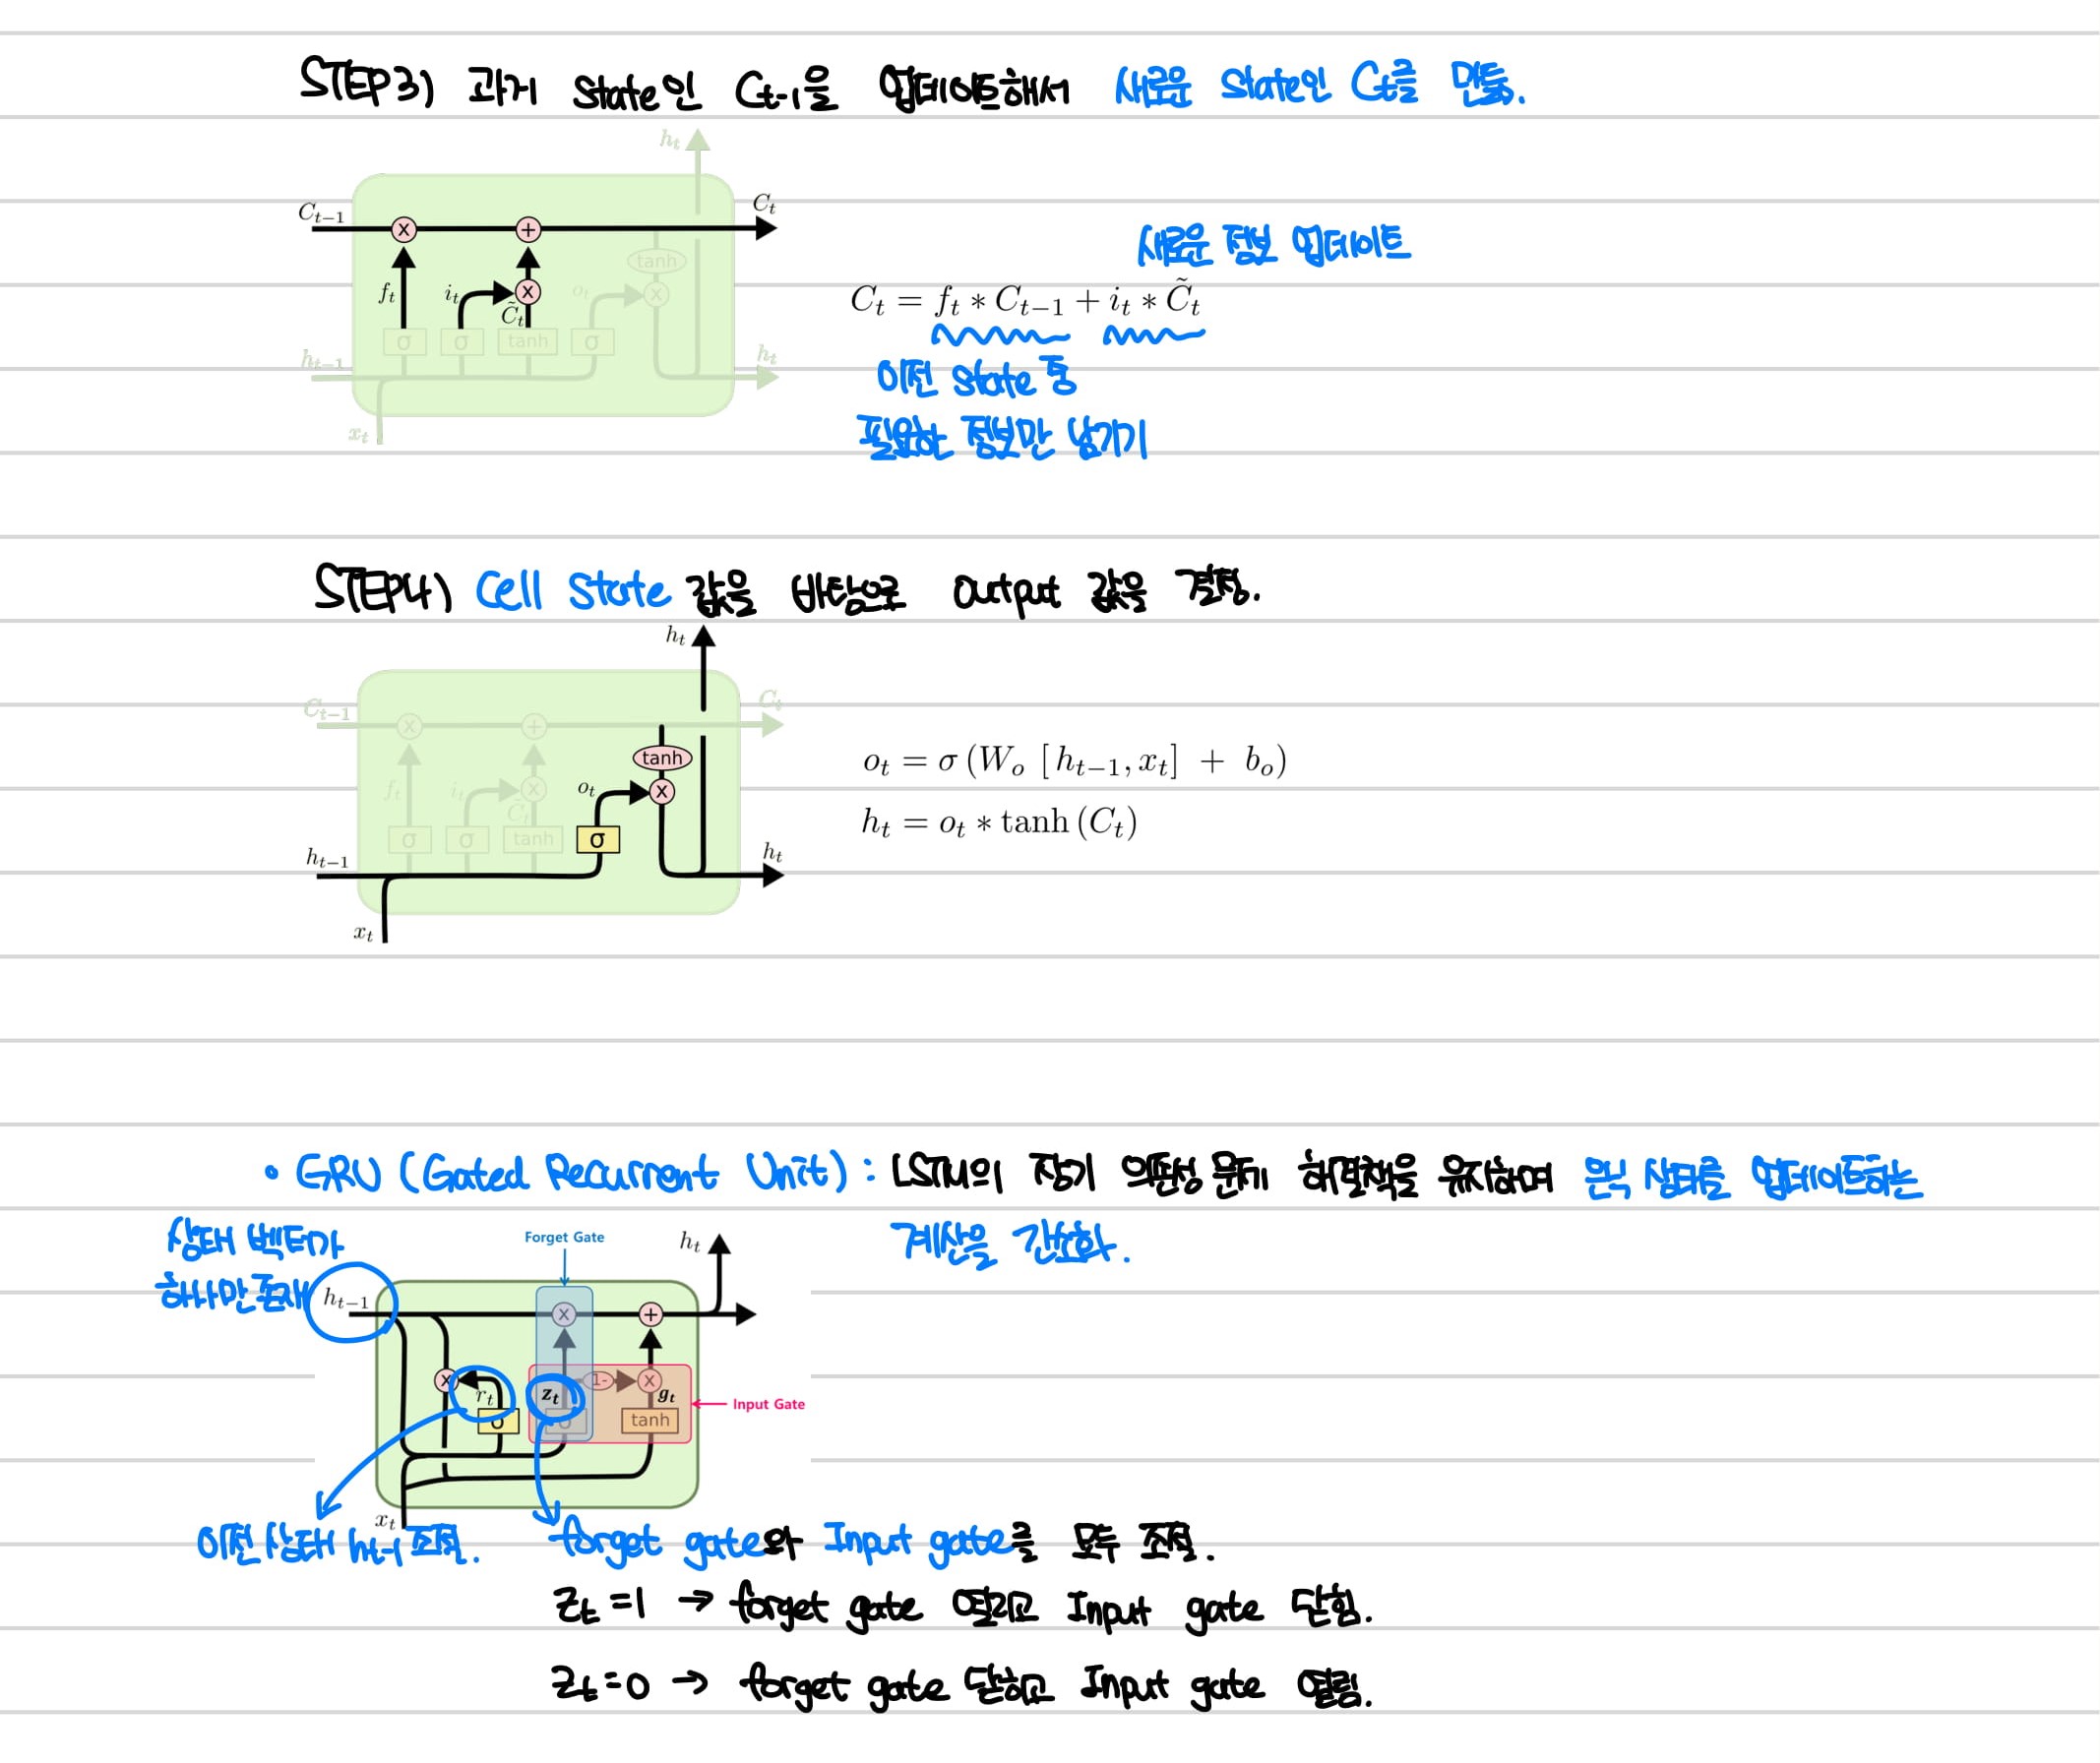 STEP3) 과거 State인 Ct-1을 업데이트해서 새로운 State인 Ct를 만듦.
h_t
C_{t-1}
C_t
tanh
f_t
i_t
C̃_t
o_t
x
+
x
x
σ
σ
tanh
σ
h_{t-1}
h_t
x_t
새로운 정보 업데이트
C_t = f_t * C_{t-1} + i_t * C̃_t
이전 State 중
필요한 정보만 남기기
STEP4) Cell State 값을 바탕으로 Output 값을 결정.
h_t
C_{t-1}
C_t
x
+
tanh
f_t
i_t
C̃_t
x
o_t
x
σ
σ
tanh
σ
h_{t-1}
h_t
x_t
o_t = σ (W_o [h_{t-1}, x_t] + b_o)
h_t = o_t * tanh (C_t)
• GRU (Gated Recurrent Unit) : LSTM의 장기 의존성 문제 해결책을 유지하며 은닉 상태를 업데이트하는
계산을 간소화.
상태 벡터가
하나만 존재
Forget Gate
h_t
h_{t-1}
x
+
x
r_t
z_t
1-
x
g_t
σ
σ
tanh
Input Gate
x_t
이전 상태 ht-1 조절.
forget gate와 Input gate를 모두 조절.
Zt = 1 → forget gate 열리고 Input gate 닫힘.
Zt = 0 → forget gate 닫히고 Input gate 열림.